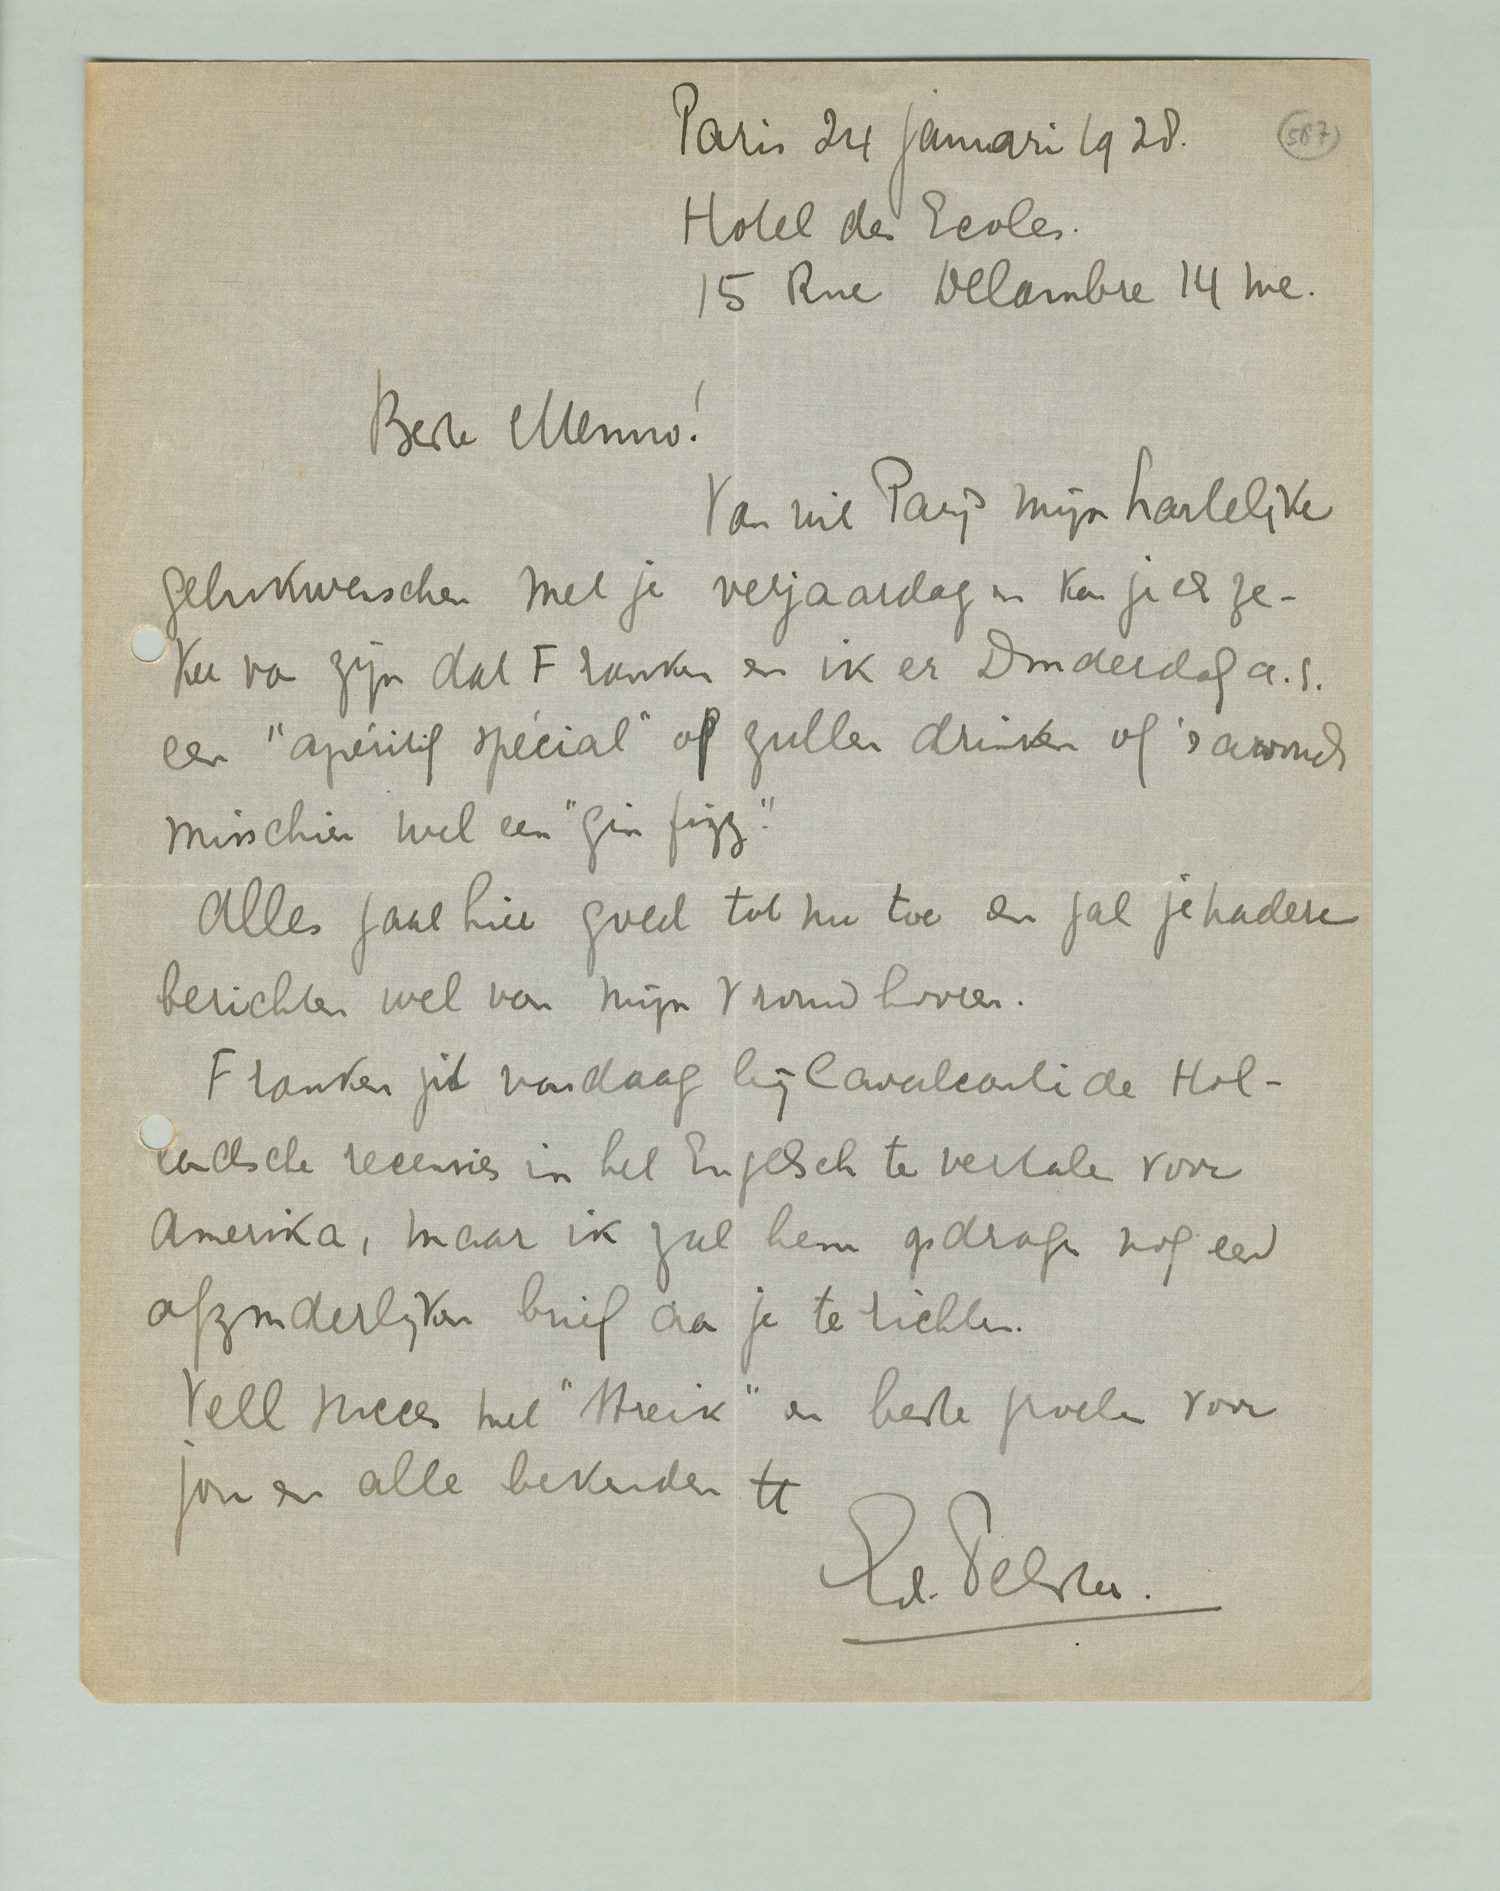 Paris 24 januari 1928.
587
Hotel des Ecoles.
15 Rue Delambre 14 me.
Beste Menno!
Van uit Parijs mijn hartelijke
gelukwenschen met je verjaardag en kan je er ze-
ker van zijn dat Franken en ik er Donderdag a.s.
een "apéritif spécial" op zullen drinken of 's avonds
misschien wel een "gin fizz".
Alles gaat hier goed tot nu toe en zal je nadere
berichten wel van mijn vrouw hooren.
Franken zit vandaag bij Cavalcanti de Hol-
landsche recensies in het Engelsch te vertalen voor
Amerika, maar ik zal hem opdragen nog een
afzonderlijken brief aan je te richten.
Veel succes met "Streik" en beste groeten voor
jou en alle bekenden tt
Ed. Pelster.